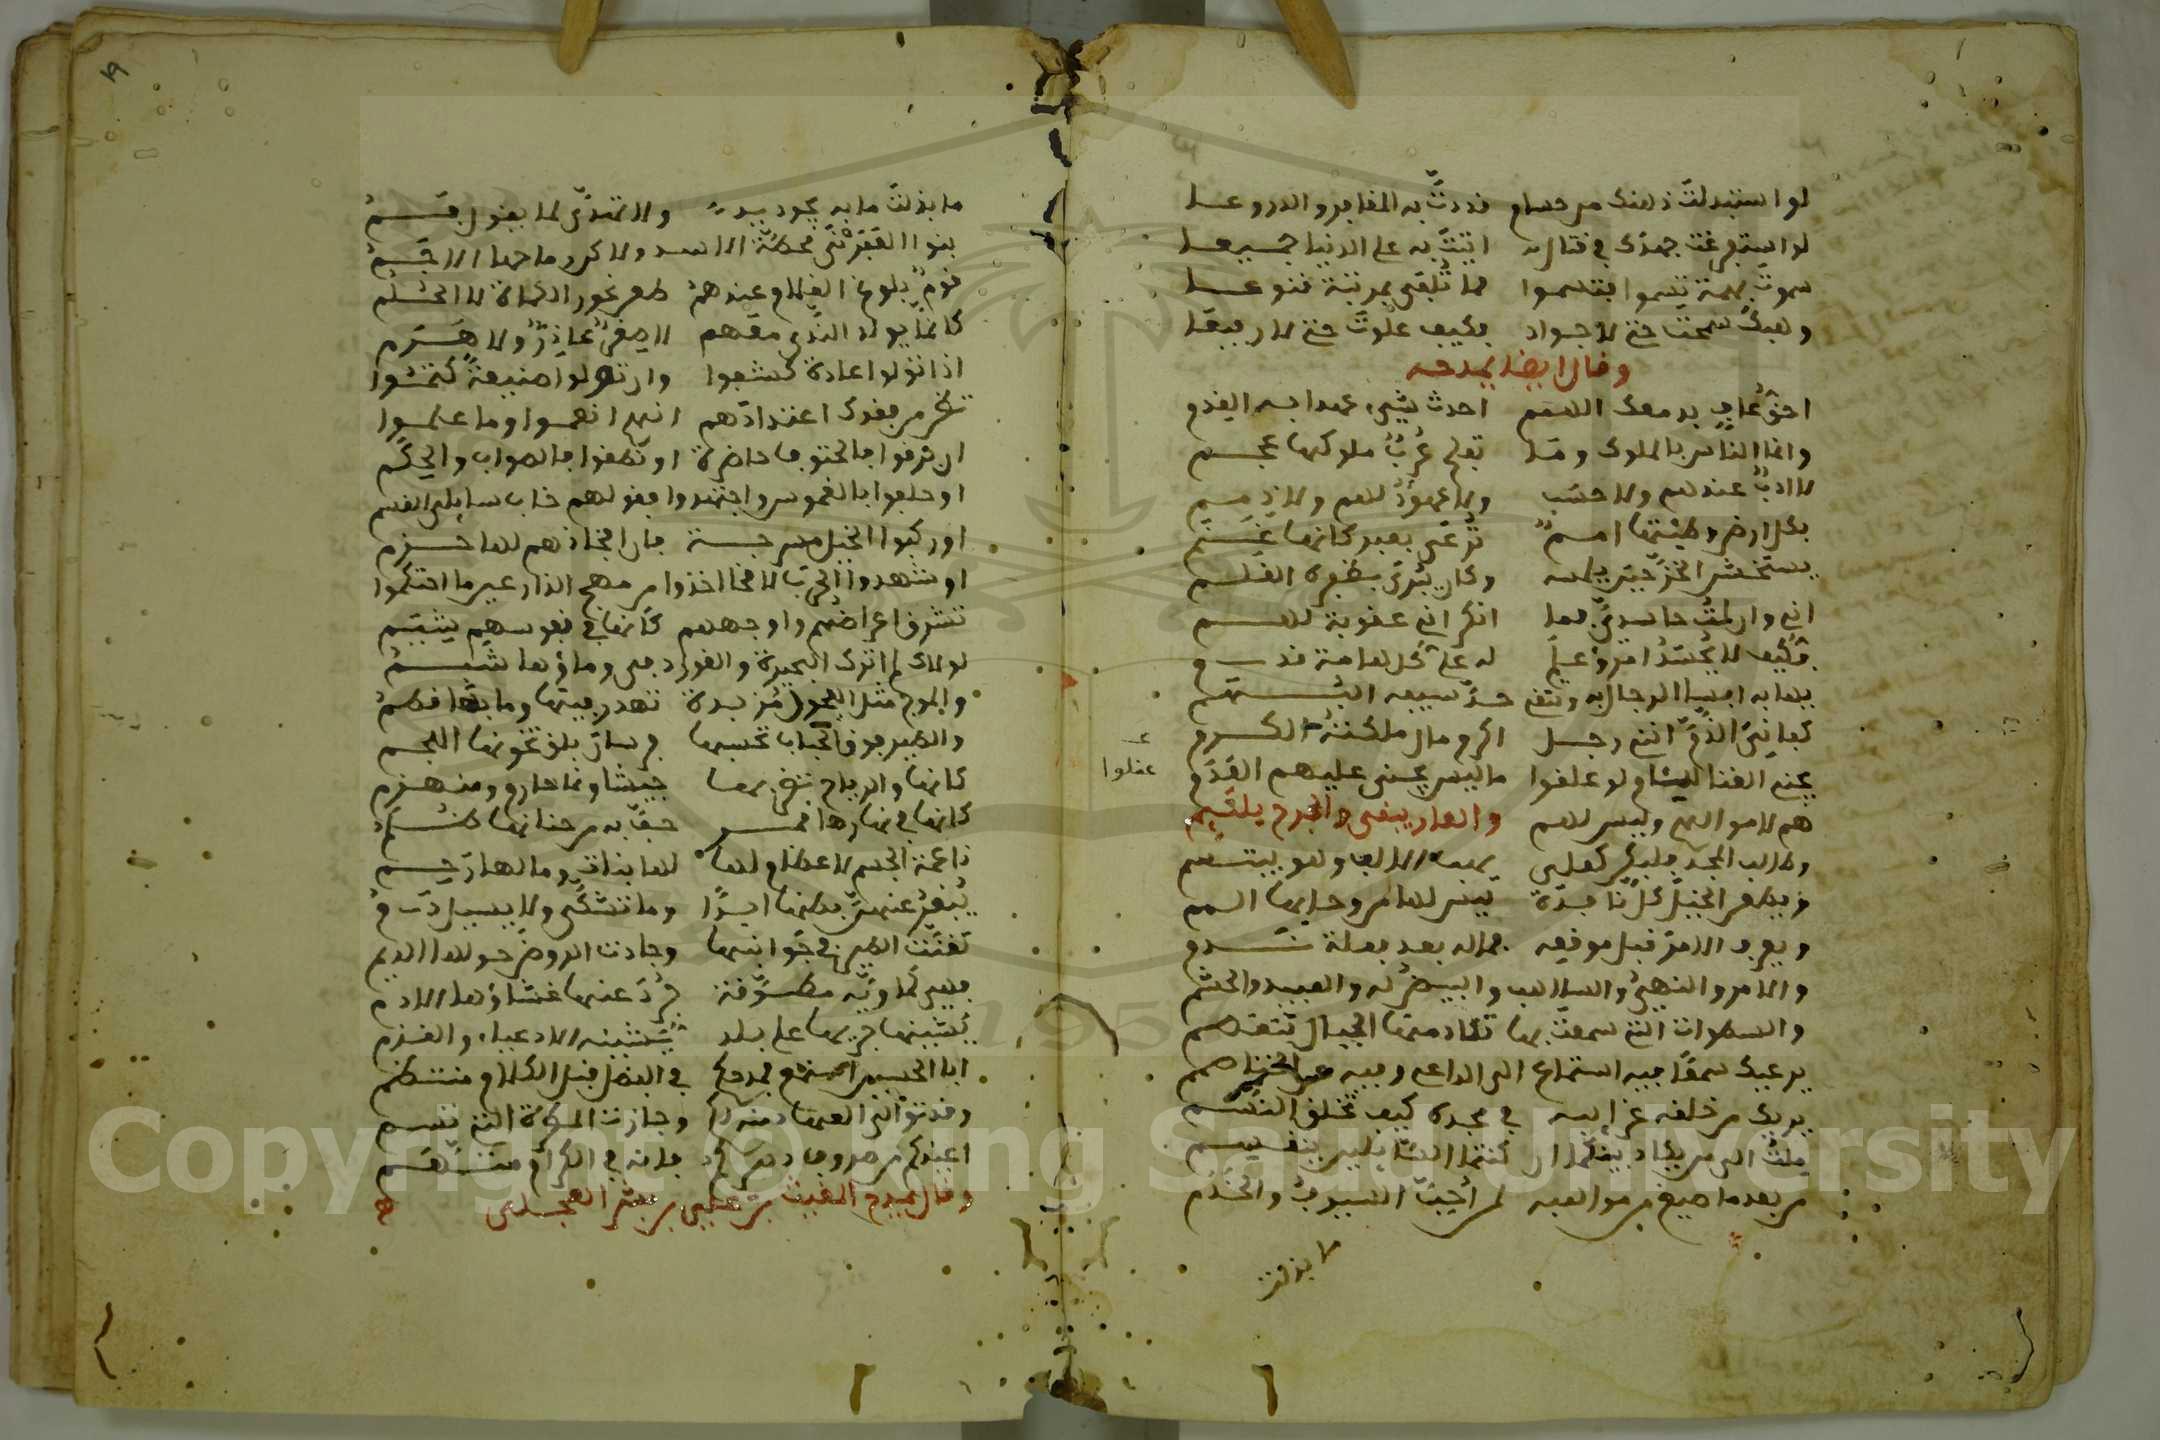 لو استبدلت ذهنك من حسام قددت به المغافر والدروعا
لو استفرغت جهدك في قتال اتيت به على الدنيا جميعا
سموت بهمة تسموا فتسموا فما تلفى بمرتبة قنوعا
وهبك سمحت حتى لا جواد فكيف علوت حتى لا رفيعا
وقال ايضا يمدحه
احق عاف بدمعك الهمم احدث شيء عهدا به القدم
وانما الناس بالملوك وما تفلح عرب ملوكها عجم
لا ادب عندهم ولا حسب ولا عهود لهم ولا ذمم
بكل ارض وطئتها امم ترعى بعبد كانها غنم
يستخشن الخز حين يلمسه وكان يبرى بظفره القلم
اني وان لمت حاسدي فما انكر اني عقوبة لهم
وكيف لا يحسد امرؤ علم له على كل هامة قدم
يهابه ابسا الرجال به وتتقي حد سيفه البهم
كفاني الذم انني رجل اكرم مال ملكته الكرم
يجني الغنا للئام لو عقلوا ما ليس يجني عليهم العدم
عقلوا
هم لاموالهم وليس لهم والعار يبقى والجرح يلتيم
وطالب المجد فليكن كعلي يهب الالف وهو يبتسم
ويطعن الخيل كل نافذة ليس لها من وحايها الم
ويعرف الامر قبل موقعه فماله بعد فعله ندم
والامر والنهي والسلاهب والبيض له والعبيد والحشم
والسطوات التي سمعت بها تكاد منها الجبال تنقصم
يرعيك سمعا فيه استماع الى الداعي وفيه عن الخنا صمم
يريك من خلقه غرايبه في مجده كيف تخلق النسم
ملت الى من يكاد بينكما ان كنتما السايلين ينقسم
من بعد ما صيغ من مواهبه لمن احب الشنوف والخدم
ما بذلت
١٩
ما بذلت ما به يجود يد ولا تهدى لما يقول فم
بنوا العفرنى محطة الاسد ولا كن رماحها الاجم
قوم بلوغ الغلام عندهم طعن نحور الكماة لا الحلم
كانما يولد الندى معهم لا صغر عاذر ولا هرم
اذا تولوا عداوة كشفوا وان تولوا صنيعة كتموا
تظن من فقدك اعتدادهم انهم انعموا وما علموا
ان برقوا فالحتوف حاضرة او نطقوا فالصواب والحكم
او حلفوا بالغموس واجتهدوا فقولهم خاب سايلي القسم
او ركبوا الخيل مسرجة فان افخاذهم لها حزم
او شهدوا الحرب لاقحا اخذوا من مهج الدارعين ما احتكموا
تشرق اعراضهم واوجههم كانها في نفوسهم شيم
لولاك لم اترك البحيرة والغور دفي وماؤها شبم
والموج مثل الفحول مزبدة تهدر فيها وما بها قطم
والطير فوق الحباب تحسبها فرسان بلق تخونها اللجم
كانها والرياح تضربها جيشا وغا هازم ومنهزم
كانها في نهارها قمر حف به من جنانها ظلم
ناعمة الجسم لا عظام لها لها بنات وما لها رحم
يبقر عنهن بطنها ابدا وما تشكى ولا يسيل دم
تغنت الطير في جوانبها وجادت الروض حولها الديم
فهي كماوية مطوقة جرد عنها غشاؤها الادم
يشينها جريها على بلد يشينه الادعياء والقزم
ابا الحسين استمع فمدحكم في الفعل قبل الكلام منتظم
وقد توالى العهاد منه لكم وجازت المطرة التي تسم
اعيذكم من صروف دهركم فانه في الكرام متهم
وقال يمدح المغيث بن علي بن بشر العجلي